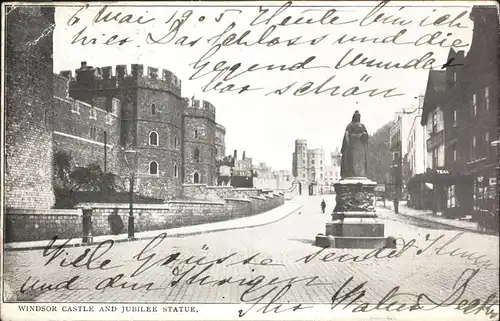 6 Mai 1905 Heute bin ich
hier. Das Schloss und die
Gegend Wunder
bar schön
TEAS
Viele Grüsse senden
und den Ihrigen
Ihr Walter
WINDSOR CASTLE AND JUBILEE STATUE.